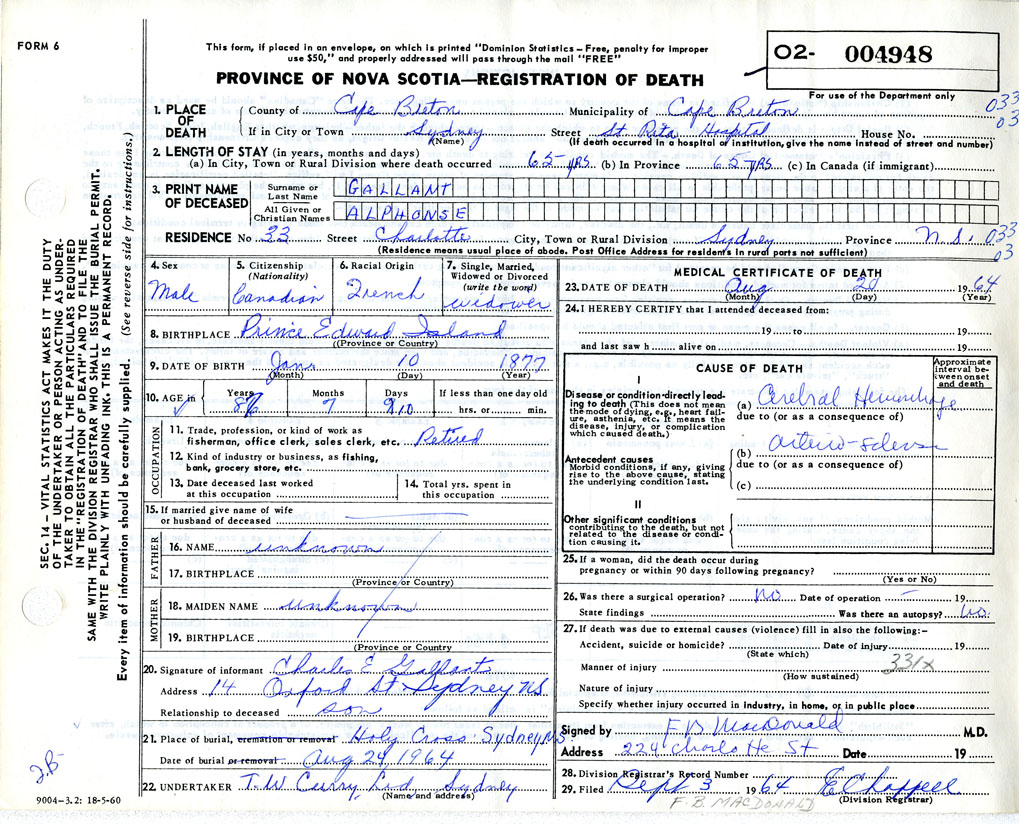 FORM 6
This form, if placed in an envelope, on which is printed "Dominion Statistics – Free, penalty for improper
use $50," and properly addressed will pass through the mail "FREE"
PROVINCE OF NOVA SCOTIA—REGISTRATION OF DEATH
O2- 004948
For use of the Department only
1. PLACE OF DEATH
County of Cape Breton Municipality of Cape Breton 033
03
If in City or Town Sydney Street St Rita Hospital House No.
(Name) (If death occurred in a hospital or institution, give the name instead of street and number)
2. LENGTH OF STAY (in years, months and days)
(a) In City, Town or Rural Division where death occurred 65 yrs (b) In Province 65 yrs (c) In Canada (if immigrant)
3. PRINT NAME OF DECEASED
Surname or Last Name GALLANT
All Given or Christian Names ALPHONSE
RESIDENCE No 33 Street Charlotte City, Town or Rural Division Sydney Province N.S. 033
03
(Residence means usual place of abode. Post Office Address for residents in rural parts not sufficient)
4. Sex
Male
5. Citizenship
(Nationality)
Canadian
6. Racial Origin
French
7. Single, Married,
Widowed or Divorced
(write the word)
widower
8. BIRTHPLACE Prince Edward Island
((Province or Country)
9. DATE OF BIRTH Jan. 10 1877
(Month) (Day) (Year)
10. AGE in
Years Months Days If less than one day old
7 hrs. or min.
OCCUPATION
11. Trade, profession, or kind of work as
fisherman, office clerk, sales clerk, etc. Retired
12. Kind of industry or business, as fishing,
bank, grocery store, etc.
13. Date deceased last worked
at this occupation
14. Total yrs. spent in
this occupation
15. If married give name of wife
or husband of deceased
FATHER
16. NAME unknown
17. BIRTHPLACE
(Province or Country)
MOTHER
18. MAIDEN NAME unknown
19. BIRTHPLACE
(Province or Country)
20. Signature of informant Charles E Gallant
Address 14 Oxford St Sydney NS
Relationship to deceased son
21. Place of burial, cremation or removal Holy Cross Sydney N.S.
Date of burial or removal Aug 24, 1964
22. UNDERTAKER T.W. Curry Ltd Sydney
(Name and address)
MEDICAL CERTIFICATE OF DEATH
23. DATE OF DEATH Aug 20 1964
(Month) (Day) (Year)
24. I HEREBY CERTIFY that I attended deceased from:
19 to 19
and last saw h alive on 19
CAUSE OF DEATH
Approximate interval between onset and death
I
Disease or condition directly leading to death (This does not mean the mode of dying, e.g., heart failure, asthenia, etc. It means the disease, injury, or complication which caused death.)
(a) Cerebral Hemorrhage
due to (or as a consequence of)
Antecedent causes
Morbid conditions, if any, giving rise to the above cause, stating the underlying condition last.
(b) arterio-sclerosis
due to (or as a consequence of)
(c)
II
Other significant conditions
contributing to the death, but not related to the disease or condition causing it.
25. If a woman, did the death occur during
pregnancy or within 90 days following pregnancy?
(Yes or No)
26. Was there a surgical operation? No Date of operation – 19
State findings Was there an autopsy? No.
27. If death was due to external causes (violence) fill in also the following:–
Accident, suicide or homicide? Date of injury 19
(State which)
Manner of injury 331x
(How sustained)
Nature of injury
Specify whether injury occurred in industry, in home, or in public place
Signed by F B MacDonald M.D.
Address 224 Charlotte St Date 19
28. Division Registrar's Record Number
29. Filed Sept 3 1964 E Chappell
(Division Registrar)
F. B. MACDONALD
SEC. 14 – VITAL STATISTICS ACT MAKES IT THE DUTY
OF THE UNDERTAKER OR PERSON ACTING AS UNDER-
TAKER TO OBTAIN ALL THE PARTICULARS REQUIRED
IN THE "REGISTRATION OF DEATH" AND TO FILE THE
SAME WITH THE DIVISION REGISTRAR WHO SHALL ISSUE THE BURIAL PERMIT.
WRITE PLAINLY WITH UNFADING INK. THIS IS A PERMANENT RECORD.
Every item of information should be carefully supplied. (See reverse side for instructions.)
9004–3.2: 18-5-60